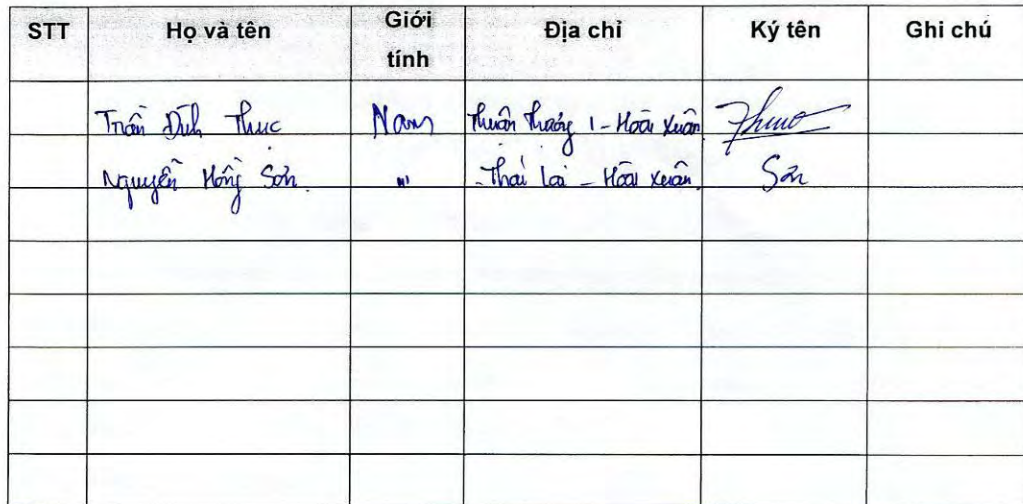 STT Họ và tên Giới tính Địa chỉ Ký tên Ghi chú
Trần Đình Thục Nam Thuận Thượng 1 - Hoài Xuân Thục
Nguyễn Hồng Sơn " - Thái Lai - Hoài Xuân Sơn